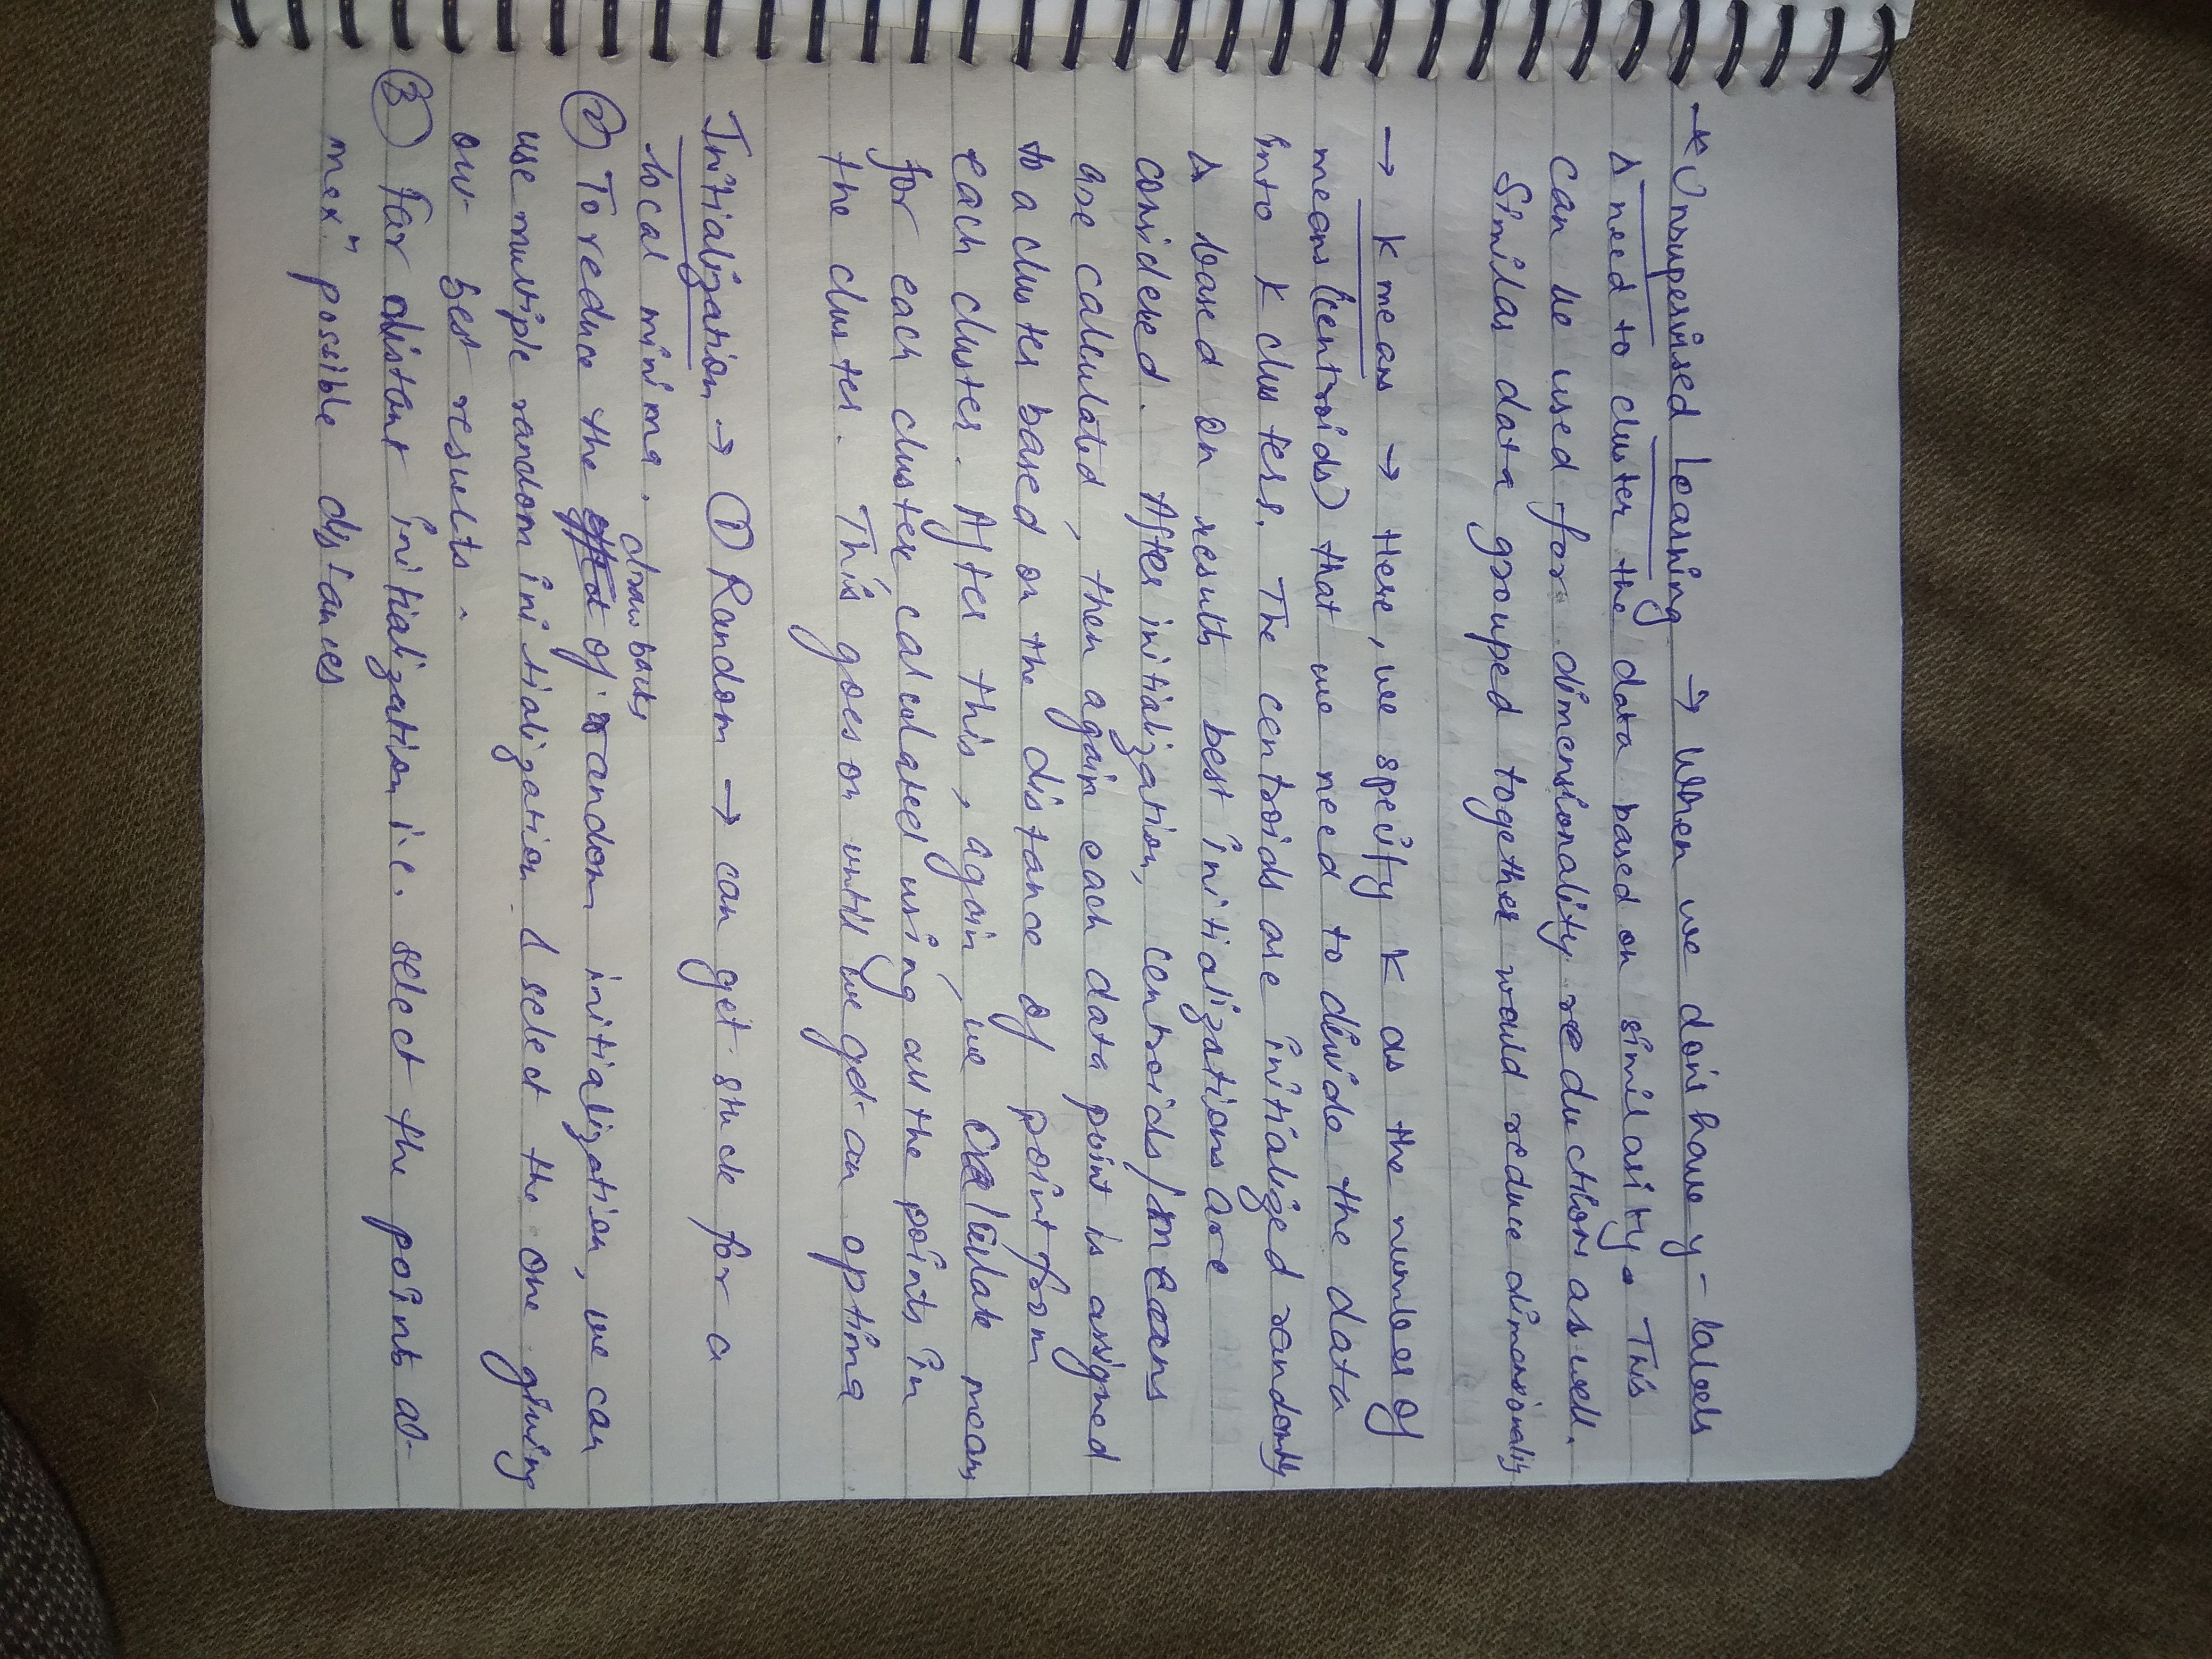 →* Unsupervised Learning → When we don't have y-labels
& need to cluster the data based on similarity. This
can be used for dimensionality reduction as well.
Similar data grouped together would reduce dimensionality
→ K means → Here, we specify K as the number of
means (centroids) that we need to divide the data
into K clusters. The centroids are initialized randomly
& based on results best initializations are
considered. After initialization, centroids/means
are calculated, then again each data point is assigned
to a cluster based on the distance of point from
each cluster. After this, again, we calculate means
for each cluster calculated using all the points in
the cluster. This goes on until we get an optima
Initialization → ① Random → can get stuck for a
local minima.
drawbacks
② To reduce the of random initialization, we can
use multiple random initialization & select the one giving
our best results.
③ Far distant initialization i.e. select the points at
max^m possible distances